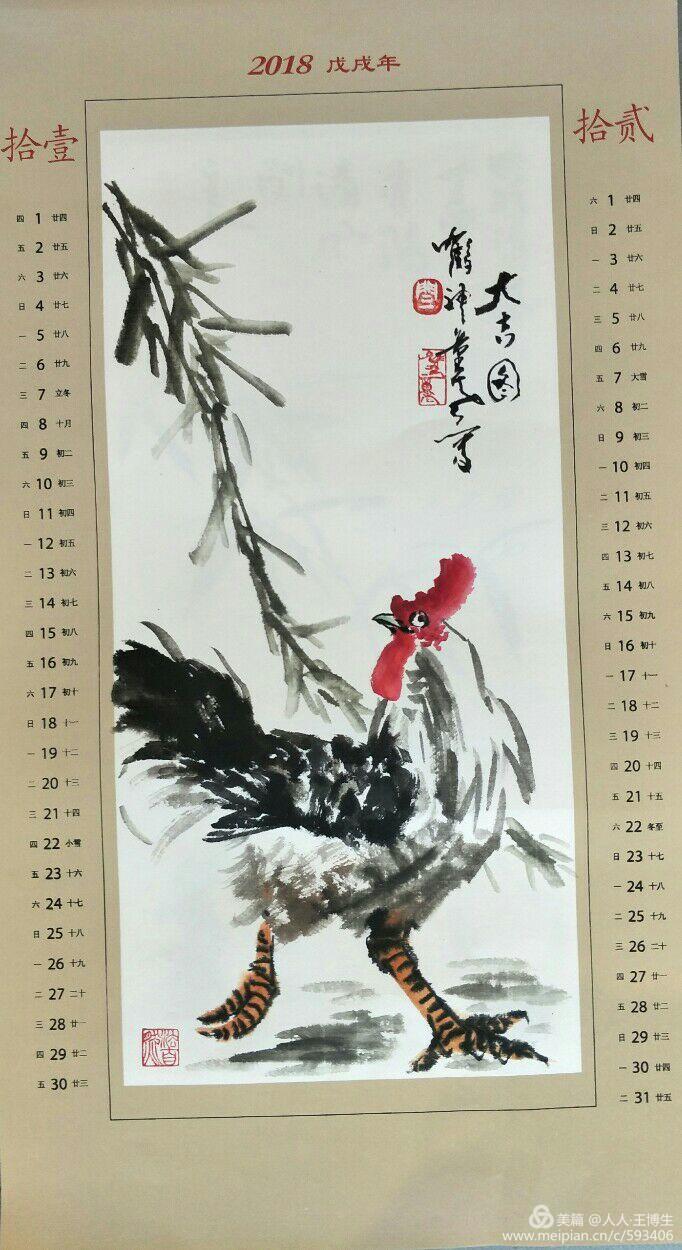 2018 戊戌年
拾壹
四 1 廿四
五 2 廿五
六 3 廿六
日 4 廿七
一 5 廿八
二 6 廿九
三 7 立冬
四 8 十月
五 9 初二
六 10 初三
日 11 初四
一 12 初五
二 13 初六
三 14 初七
四 15 初八
五 16 初九
六 17 初十
日 18 十一
一 19 十二
二 20 十三
三 21 十四
四 22 小雪
五 23 十六
六 24 十七
日 25 十八
一 26 十九
二 27 二十
三 28 廿一
四 29 廿二
五 30 廿三
大吉图
拾贰
六 1 廿四
日 2 廿五
一 3 廿六
二 4 廿七
三 5 廿八
四 6 廿九
五 7 大雪
六 8 初二
日 9 初三
一 10 初四
二 11 初五
三 12 初六
四 13 初七
五 14 初八
六 15 初九
日 16 初十
一 17 十一
二 18 十二
三 19 十三
四 20 十四
五 21 十五
六 22 冬至
日 23 十七
一 24 十八
二 25 十九
三 26 二十
四 27 廿一
五 28 廿二
日 29 廿三
一 30 廿四
二 31 廿五
美篇 @人人·王博生
www.meipian.cn/c/593406